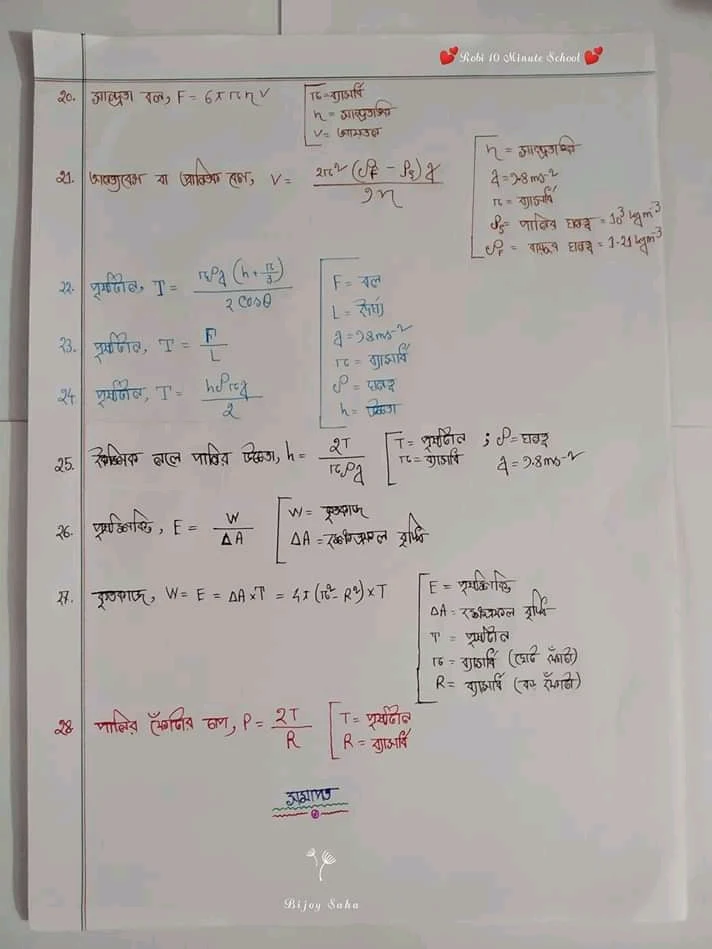 💕Robi 10 Minute School💕
20. সান্দ্রতা বল, F = 6πrηv
r = ব্যাসার্ধ
η = সান্দ্রতাঙ্ক
v = আয়তন
21. অন্ত্যবেগ বা প্রান্তিক বেগ, v = 2r²(ρF - ρs)g / 9η
η = সান্দ্রতাঙ্ক
g = 9.8 ms⁻²
r = ব্যাসার্ধ
ρs = পানির ঘনত্ব = 10³ kgm⁻³
ρF = বায়ুর ঘনত্ব = 1.21 kgm⁻³
22. পৃষ্ঠটান, T = rρg(h + r/3) / 2cosθ
23. পৃষ্ঠটান, T = F / L
24. পৃষ্ঠটান, T = hρrg / 2
F = বল
L = দৈর্ঘ্য
g = 9.8 ms⁻²
r = ব্যাসার্ধ
ρ = ঘনত্ব
h = উচ্চতা
25. কৈশিক নলে পানির উচ্চতা, h = 2T / rρg
T = পৃষ্ঠটান ; ρ = ঘনত্ব
r = ব্যাসার্ধ g = 9.8 ms⁻²
26. পৃষ্ঠশক্তি, E = W / ΔA
W = কৃতকাজ
ΔA = ক্ষেত্রফল বৃদ্ধি
27. কৃতকাজ, W = E = ΔA×T = 4π(r² - R²)×T
E = পৃষ্ঠশক্তি
ΔA = ক্ষেত্রফল বৃদ্ধি
T = পৃষ্ঠটান
r = ব্যাসার্ধ (ছোট ফোঁটা)
R = ব্যাসার্ধ (বড় ফোঁটা)
28 পানির ফোঁটার চাপ, P = 2T / R
T = পৃষ্ঠটান
R = ব্যাসার্ধ
সমাপ্ত
Bijoy Saha